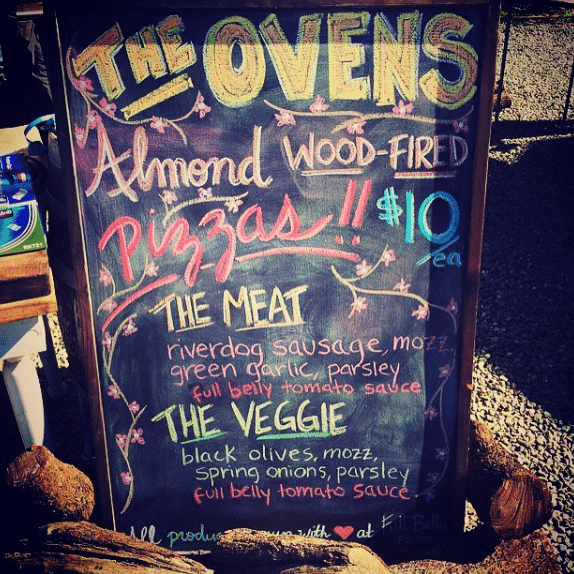 THE OVENS
Almond WOOD-FIRED
Pizzas!! $10
/ea
THE MEAT
riverdog sausage, mozz,
green garlic, parsley
full belly tomato sauce
THE VEGGIE
black olives, mozz,
spring onions, parsley
full belly tomato sauce
All with ♥ at Full Belly